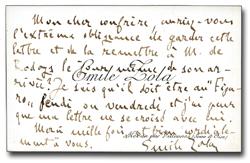 Mon cher confrère, auriez-vous
l'extrême obligeance de garder cette
lettre et de la remettre à M. de
Rodays le jour même de son ar-
rivée? Je sais qu'il doit être au Figa-
ro, jeudi ou vendredi, et j'ai peur
que ma lettre ne se croise avec lui.
Merci mille fois, et bien cordiale-
ment à vous.
Emile Zola
Emile Zola